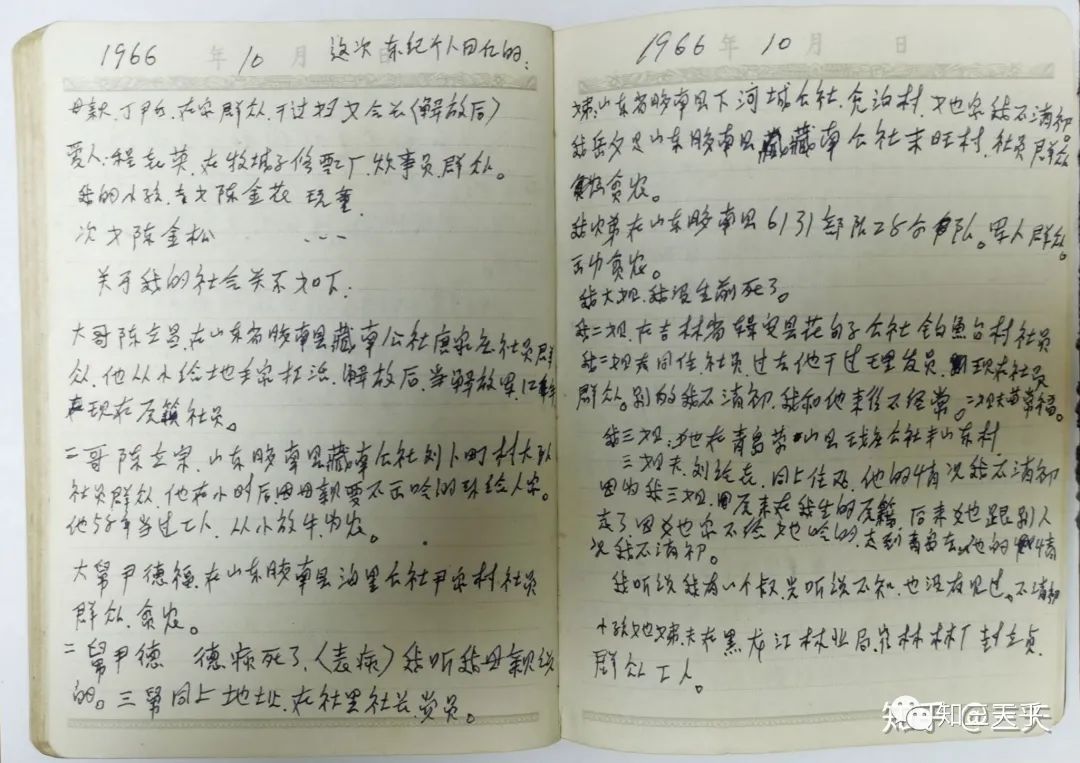 1966 年 10 月 日 这次 东纪个人回忆的:
母亲、丁尹氏、在家群众、干过妇女会长(解放后)
爱人:程志英、在牧城子修配厂炊事员、群众。
我的小孩、长女陈金花 玩童.
次女陈金松 、、、
关于我的社会关系如下:
大哥陈立昌、在山东省胶南县藏南公社唐家庄社员群
众、他从小给地主家扛活、解放后、当解放军12年
现在原籍社员。
二哥陈立宗、山东胶南县藏南公社刘卜町村大队
社员群众、他在小时后、因母亲要不出吃的、给人家。
他58年当过工人、从小放牛为农。
大舅尹德福、在山东胶南县海里公社尹家村社员
群众、贫农。
二舅尹德 德病死了、〈表病〉我听我母亲说
的。三舅同上地址、在社里社长、党员。
1966 年 10 月 日
妹:山东省胶南县下河城公社、仓泊村、她家我不清初
我岳父是山东胶南县藏南公社末旺村、社员群众
贫农。
我次弟在山东胶南县6131部队25分队。军人群众
贫农。
我大姐、我没生前死了。
我二姐、在吉林省辑安县花甸子公社钓鱼台村社员
我二姐夫同住、社员、过去他干过理发员、现在社员
群众。别的我不清初、我和他来往不经常。二姐夫苗常福。
我三姐:她在青岛 山县 公社 山东村
三姐夫、刘给志、同上住处、他的情况我不清初
因为我三姐、原来在我生的原籍、后来她跟别人
走了因她家不给她吃的、走到青岛去、他的情
况我不清初。
我听说我有一个叔、光听说不知、也没有见过。不清初
小孩她妹夫在黑龙江林业局 林林厂封立贞
群众工人。
知乎 @天乎